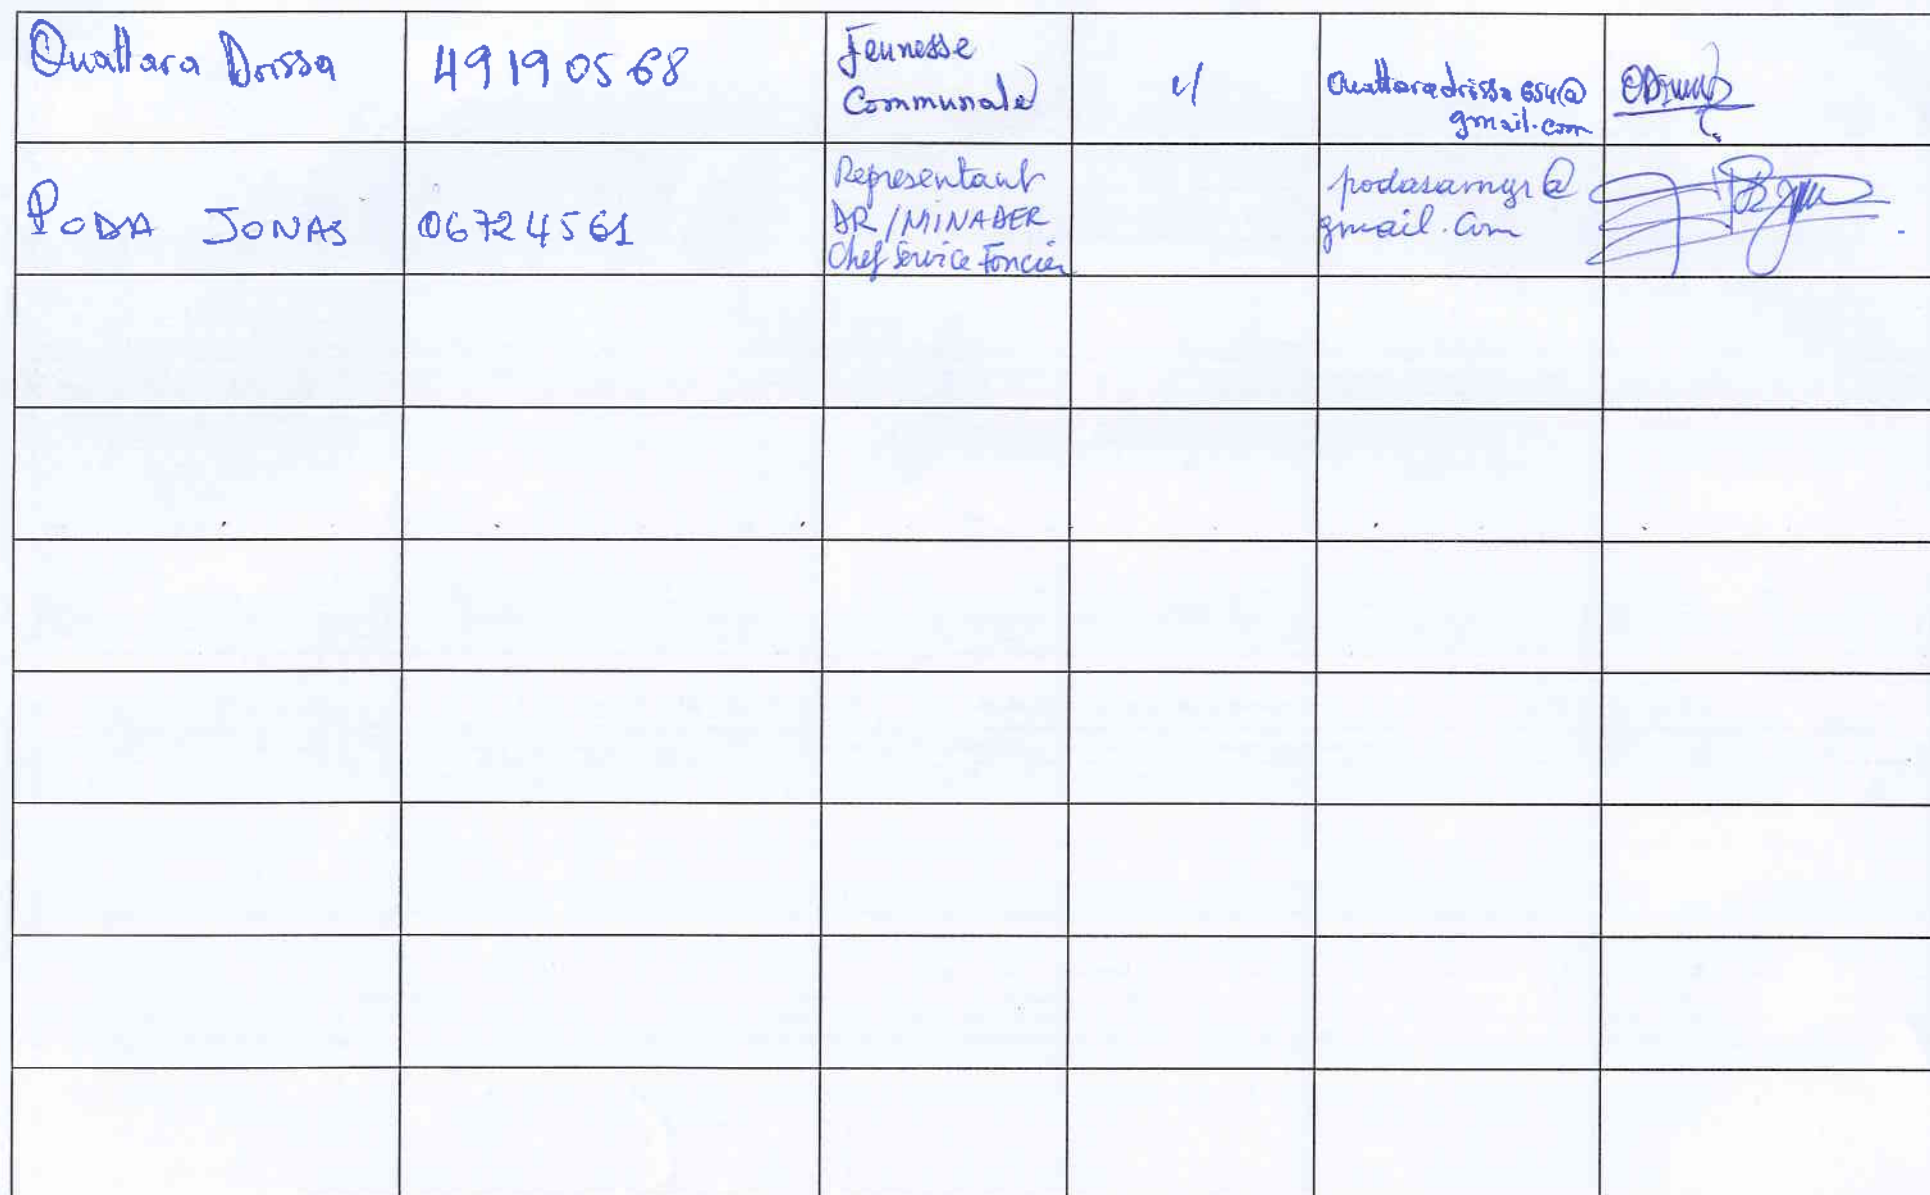 Ouattara Drissa
49190568
Jeunesse
Communale
ouattaradrissa654@
gmail.com
PODA JONAS
06724561
Representant
DR/MINADER
Chef Service Foncier
podasamyr@
gmail.com